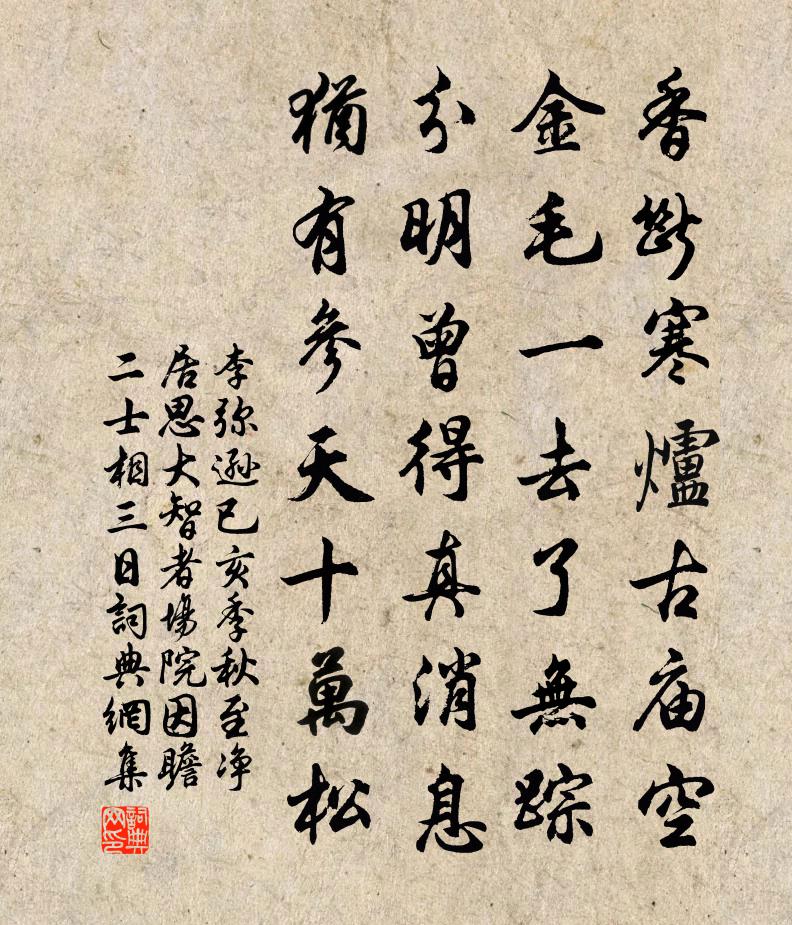 香斷寒爐古庙空
金毛一去了無踪
分明曾得真消息
猶有參天十萬松
李弥遜已亥季秋至净
居思大智者場院因瞻
二士相三日詞典網集
詞典网印